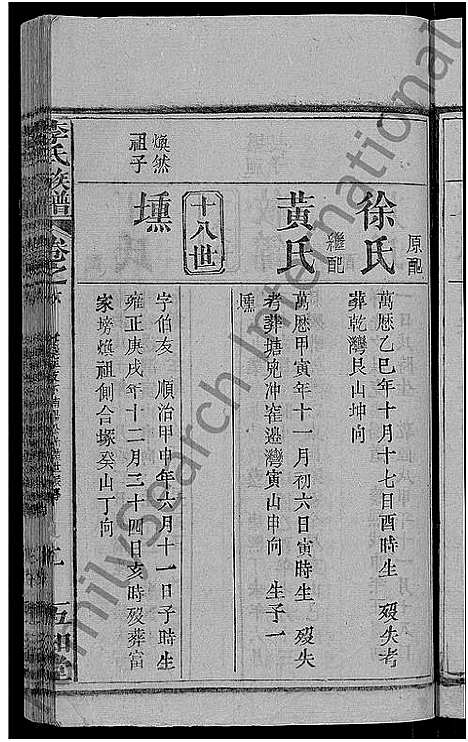 原配
徐氏
萬曆乙巳年十月十七日酉時生 歿失考
葬乾灣艮山坤向
繼配
黃氏
萬曆甲寅年十一月初六日寅時生 歿失
考葬塘兜冲窰邉灣寅山申向 生子一
壎
十八世
煥然
祖子
壎
字伯友 順治甲申年六月十一日子時生
雍正庚戌年十二月二十四日亥時歿葬富
家塝煥祖側合塚癸山丁向
李氏族譜
卷之
五和堂
FamilySearch International